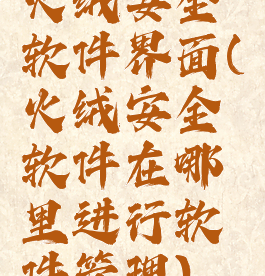 火绒安全
软件界面(
火绒安全
软件在哪
里进行软
件管理)